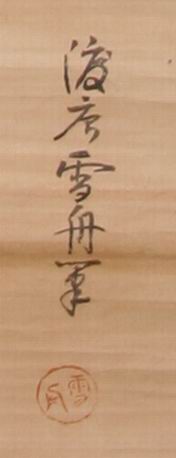 渡唐雪舟筆
雪舟